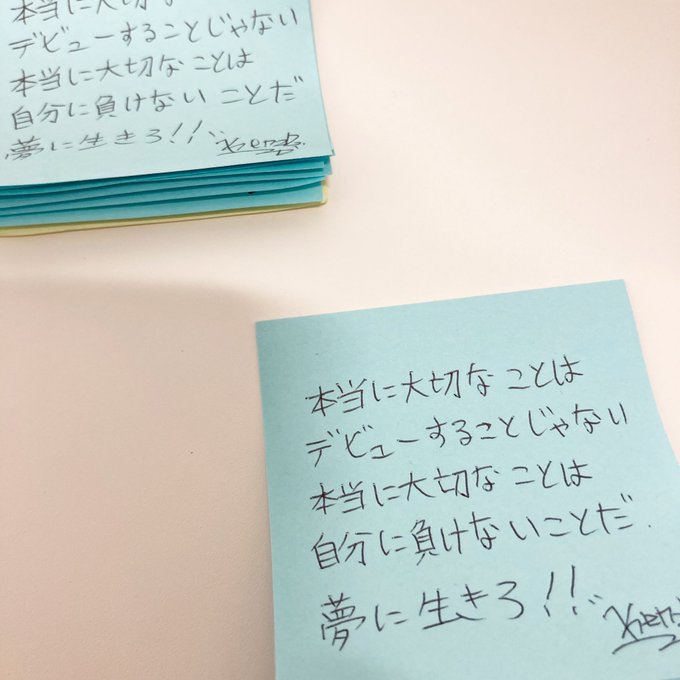 本当に大切な
デビューすることじゃない
本当に大切なことは
自分に負けないことだ
夢に生きろ!!
本当に大切なことは
デビューすることじゃない
本当に大切なことは
自分に負けないことだ.
夢に生きろ!!